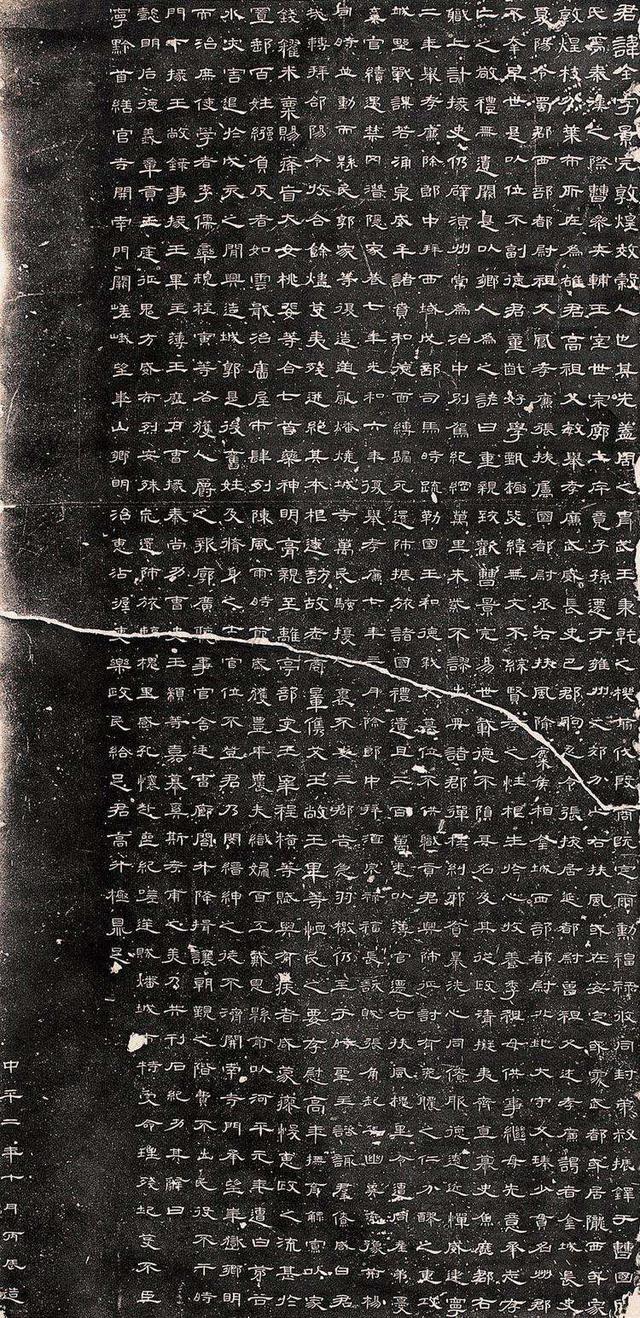 君諱全字景完敦煌效穀人也其先蓋周之胄武王秉乾之機翦伐殷商既定爾勳福祿攸同封弟叔振鐸于曹國因
氏焉秦漢之際曹參夾輔王室世宗廓土斥竟子孫遷于雍州之郊分止右扶風或在安定或處武都或居隴西或家
敦煌枝分葉布所在為雄君高祖父敏舉孝廉武威長史巴郡朐忍令張掖居延都尉曾祖父述孝廉謁者金城長史
夏陽令蜀郡西部都尉祖父鳳孝廉張掖屬國都尉丞右扶風隃麋侯相金城西部都尉北地大守父琫少貫名州郡
不幸早世是以位不副德君童齔好學甄極毖緯無文不綜賢孝之性根生於心收養季祖母供事繼母先意承志存
亡之敬禮無遺闕是以鄉人為之諺曰重親致歡曹景完易世載德不隕其名及其從政清擬夷齊直慕史魚歷郡右
職上計掾史仍辟涼州常為治中別駕紀綱萬里朱紫不謬出典諸郡彈枉糾邪貪暴洗心同僚服德遠近憚威建寧
二年舉孝廉除郎中拜西域戊部司馬時疏勒國王和德弒父篡位不供職貢君興師征討有兗膿之仁分醪之惠攻
城野戰謀若涌泉威牟諸賁和德面縛歸死還師振旅諸國禮遺且二百萬悉以簿官遷右扶風槐里令遭同產弟憂
棄官續遇禁冈潛隱家巷七年光和六年復舉孝廉七年三月除郎中拜酒泉祿福長訞賊張角起兵幽冀兗豫荊楊
同時並動而縣民郭家等復造逆亂燔燒城寺萬民騷擾人褱不安三郡告急羽檄仍至于時聖主諮諏群僚咸曰君
哉轉拜郃陽令收合餘燼芟夷殘迸絕其本根遂訪故老商量儁艾王敞王畢等恤民之要存慰高年撫育鰥寡以家
錢糴米粟賜癃盲大女桃婓等合七首藥神明膏親至離亭部吏王宰程橫等賦與有疾者咸蒙瘳悛惠政之流甚於
置郵百姓繈負反者如雲戢治廧屋市肆列陳風雨時節歲獲豐年農夫織婦百工戴恩縣前以河平元年遭白茅谷
水灾害退於戌亥之間興造城郭是後舊姓及脩身之士官位不登君乃閔縉紳之徒不濟開南寺門承望華嶽鄉明
而治庶使學者李儒欒規程寅等各獲人爵之報廓廣聽事官舍廷曹廊閣升降揖讓朝覲之階費不出民役不干時
門下掾王敞錄事掾王畢主簿王歷戶曹掾秦尚功曹史王顓等嘉慕奚斯考甫之美乃共刊石紀功其辭曰
懿明后德義章貢王庭征鬼方威布烈安殊巟還師旅臨槐里感孔懷赴喪紀嗟逆賊燔城市特受命理殘圮芟不臣
寧黔首繕官寺開南門闕嵯峨望華山鄉明治惠沾渥吏樂政民給足君高升極鼎足
中平二年十月丙辰造